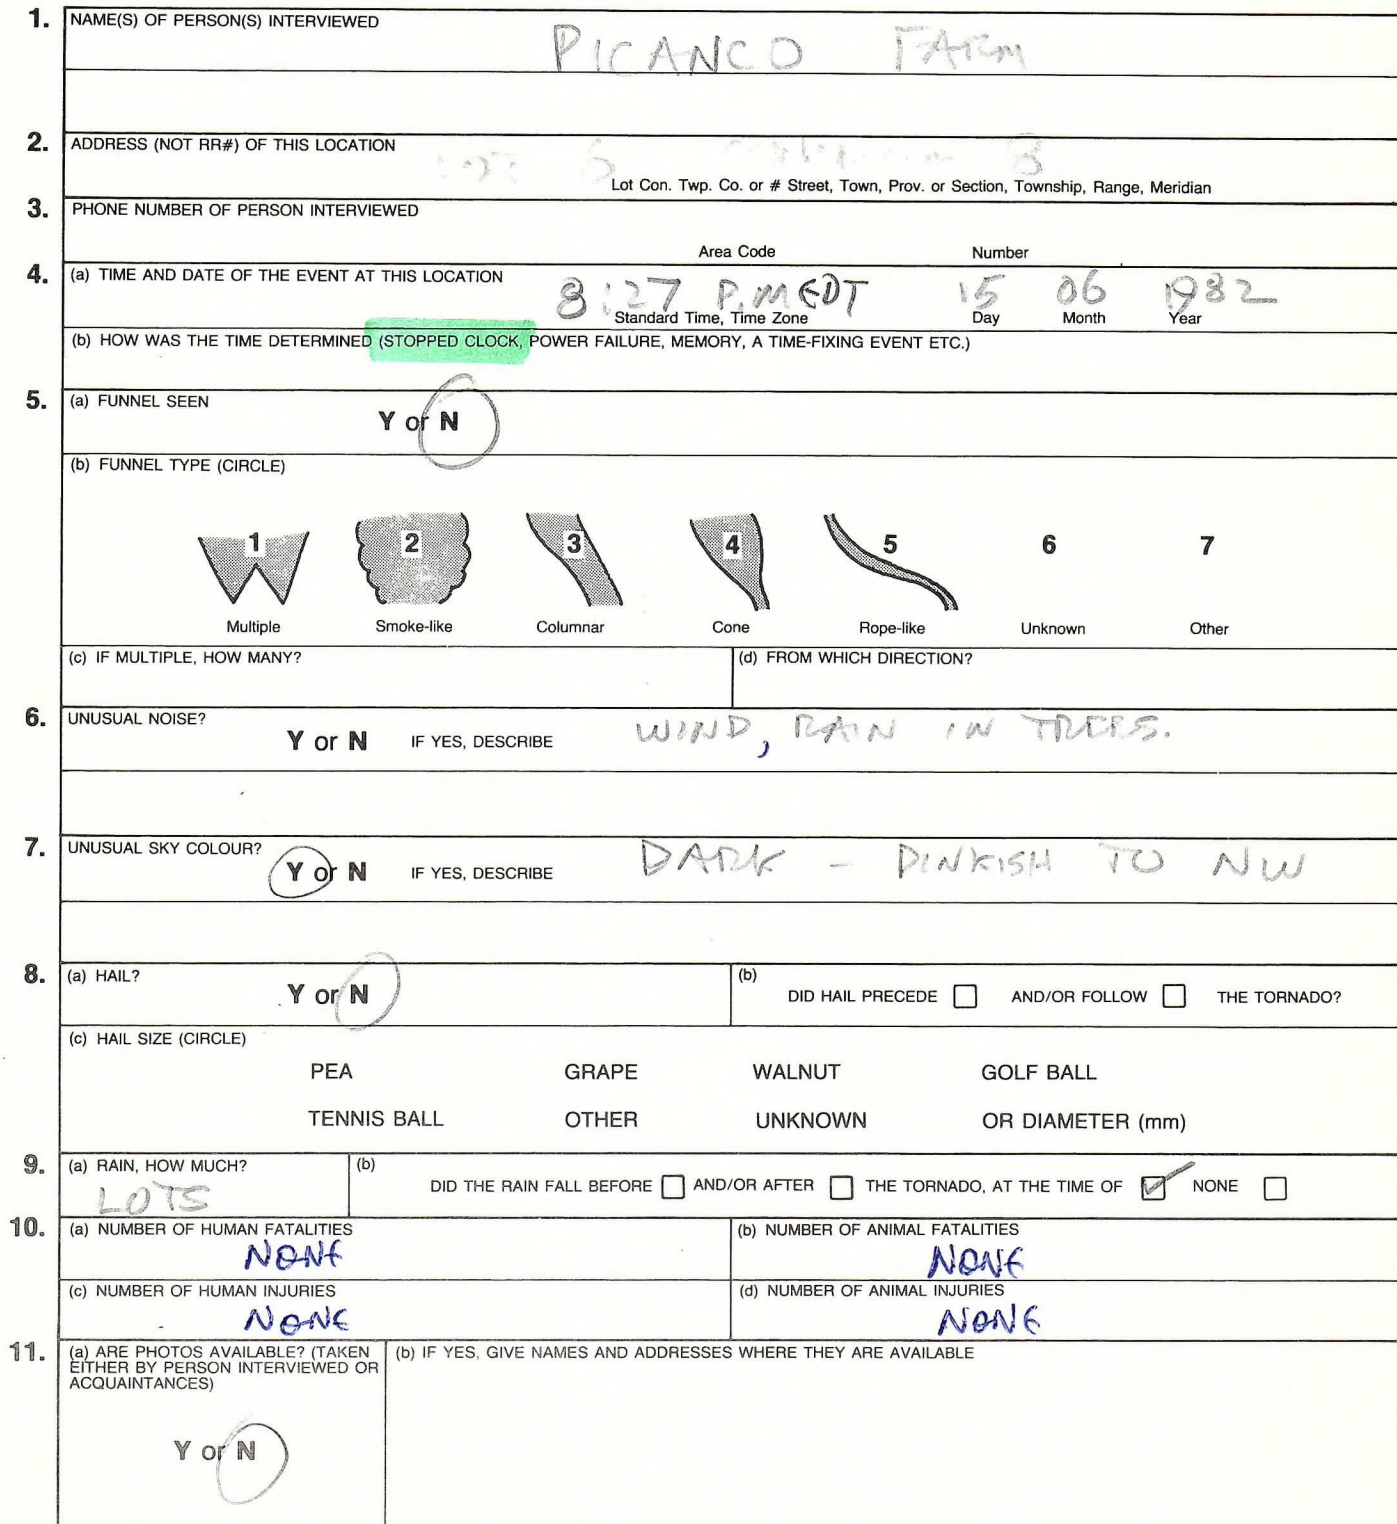 1. NAME(S) OF PERSON(S) INTERVIEWED
PICANCO FARM
2. ADDRESS (NOT RR#) OF THIS LOCATION
LOT 6 8
Lot Con. Twp. Co. or # Street, Town, Prov. or Section, Township, Range, Meridian
3. PHONE NUMBER OF PERSON INTERVIEWED
Area Code Number
4. (a) TIME AND DATE OF THE EVENT AT THIS LOCATION
8:27 P.M EDT 15 06 1982
Standard Time, Time Zone Day Month Year
(b) HOW WAS THE TIME DETERMINED (STOPPED CLOCK, POWER FAILURE, MEMORY, A TIME-FIXING EVENT ETC.)
5. (a) FUNNEL SEEN
Y or N
(b) FUNNEL TYPE (CIRCLE)
1 2 3 4 5 6 7
Multiple Smoke-like Columnar Cone Rope-like Unknown Other
(c) IF MULTIPLE, HOW MANY? (d) FROM WHICH DIRECTION?
6. UNUSUAL NOISE?
Y or N IF YES, DESCRIBE WIND, RAIN IN TREES.
7. UNUSUAL SKY COLOUR?
Y or N IF YES, DESCRIBE DARK - PINKISH TO NW
8. (a) HAIL? Y or N
(b) DID HAIL PRECEDE AND/OR FOLLOW THE TORNADO?
(c) HAIL SIZE (CIRCLE)
PEA GRAPE WALNUT GOLF BALL
TENNIS BALL OTHER UNKNOWN OR DIAMETER (mm)
9. (a) RAIN, HOW MUCH?
LOTS
(b) DID THE RAIN FALL BEFORE AND/OR AFTER THE TORNADO, AT THE TIME OF NONE
10. (a) NUMBER OF HUMAN FATALITIES (b) NUMBER OF ANIMAL FATALITIES
NONE NONE
(c) NUMBER OF HUMAN INJURIES (d) NUMBER OF ANIMAL INJURIES
NONE NONE
11. (a) ARE PHOTOS AVAILABLE? (TAKEN
EITHER BY PERSON INTERVIEWED OR
ACQUAINTANCES)
Y or N
(b) IF YES, GIVE NAMES AND ADDRESSES WHERE THEY ARE AVAILABLE